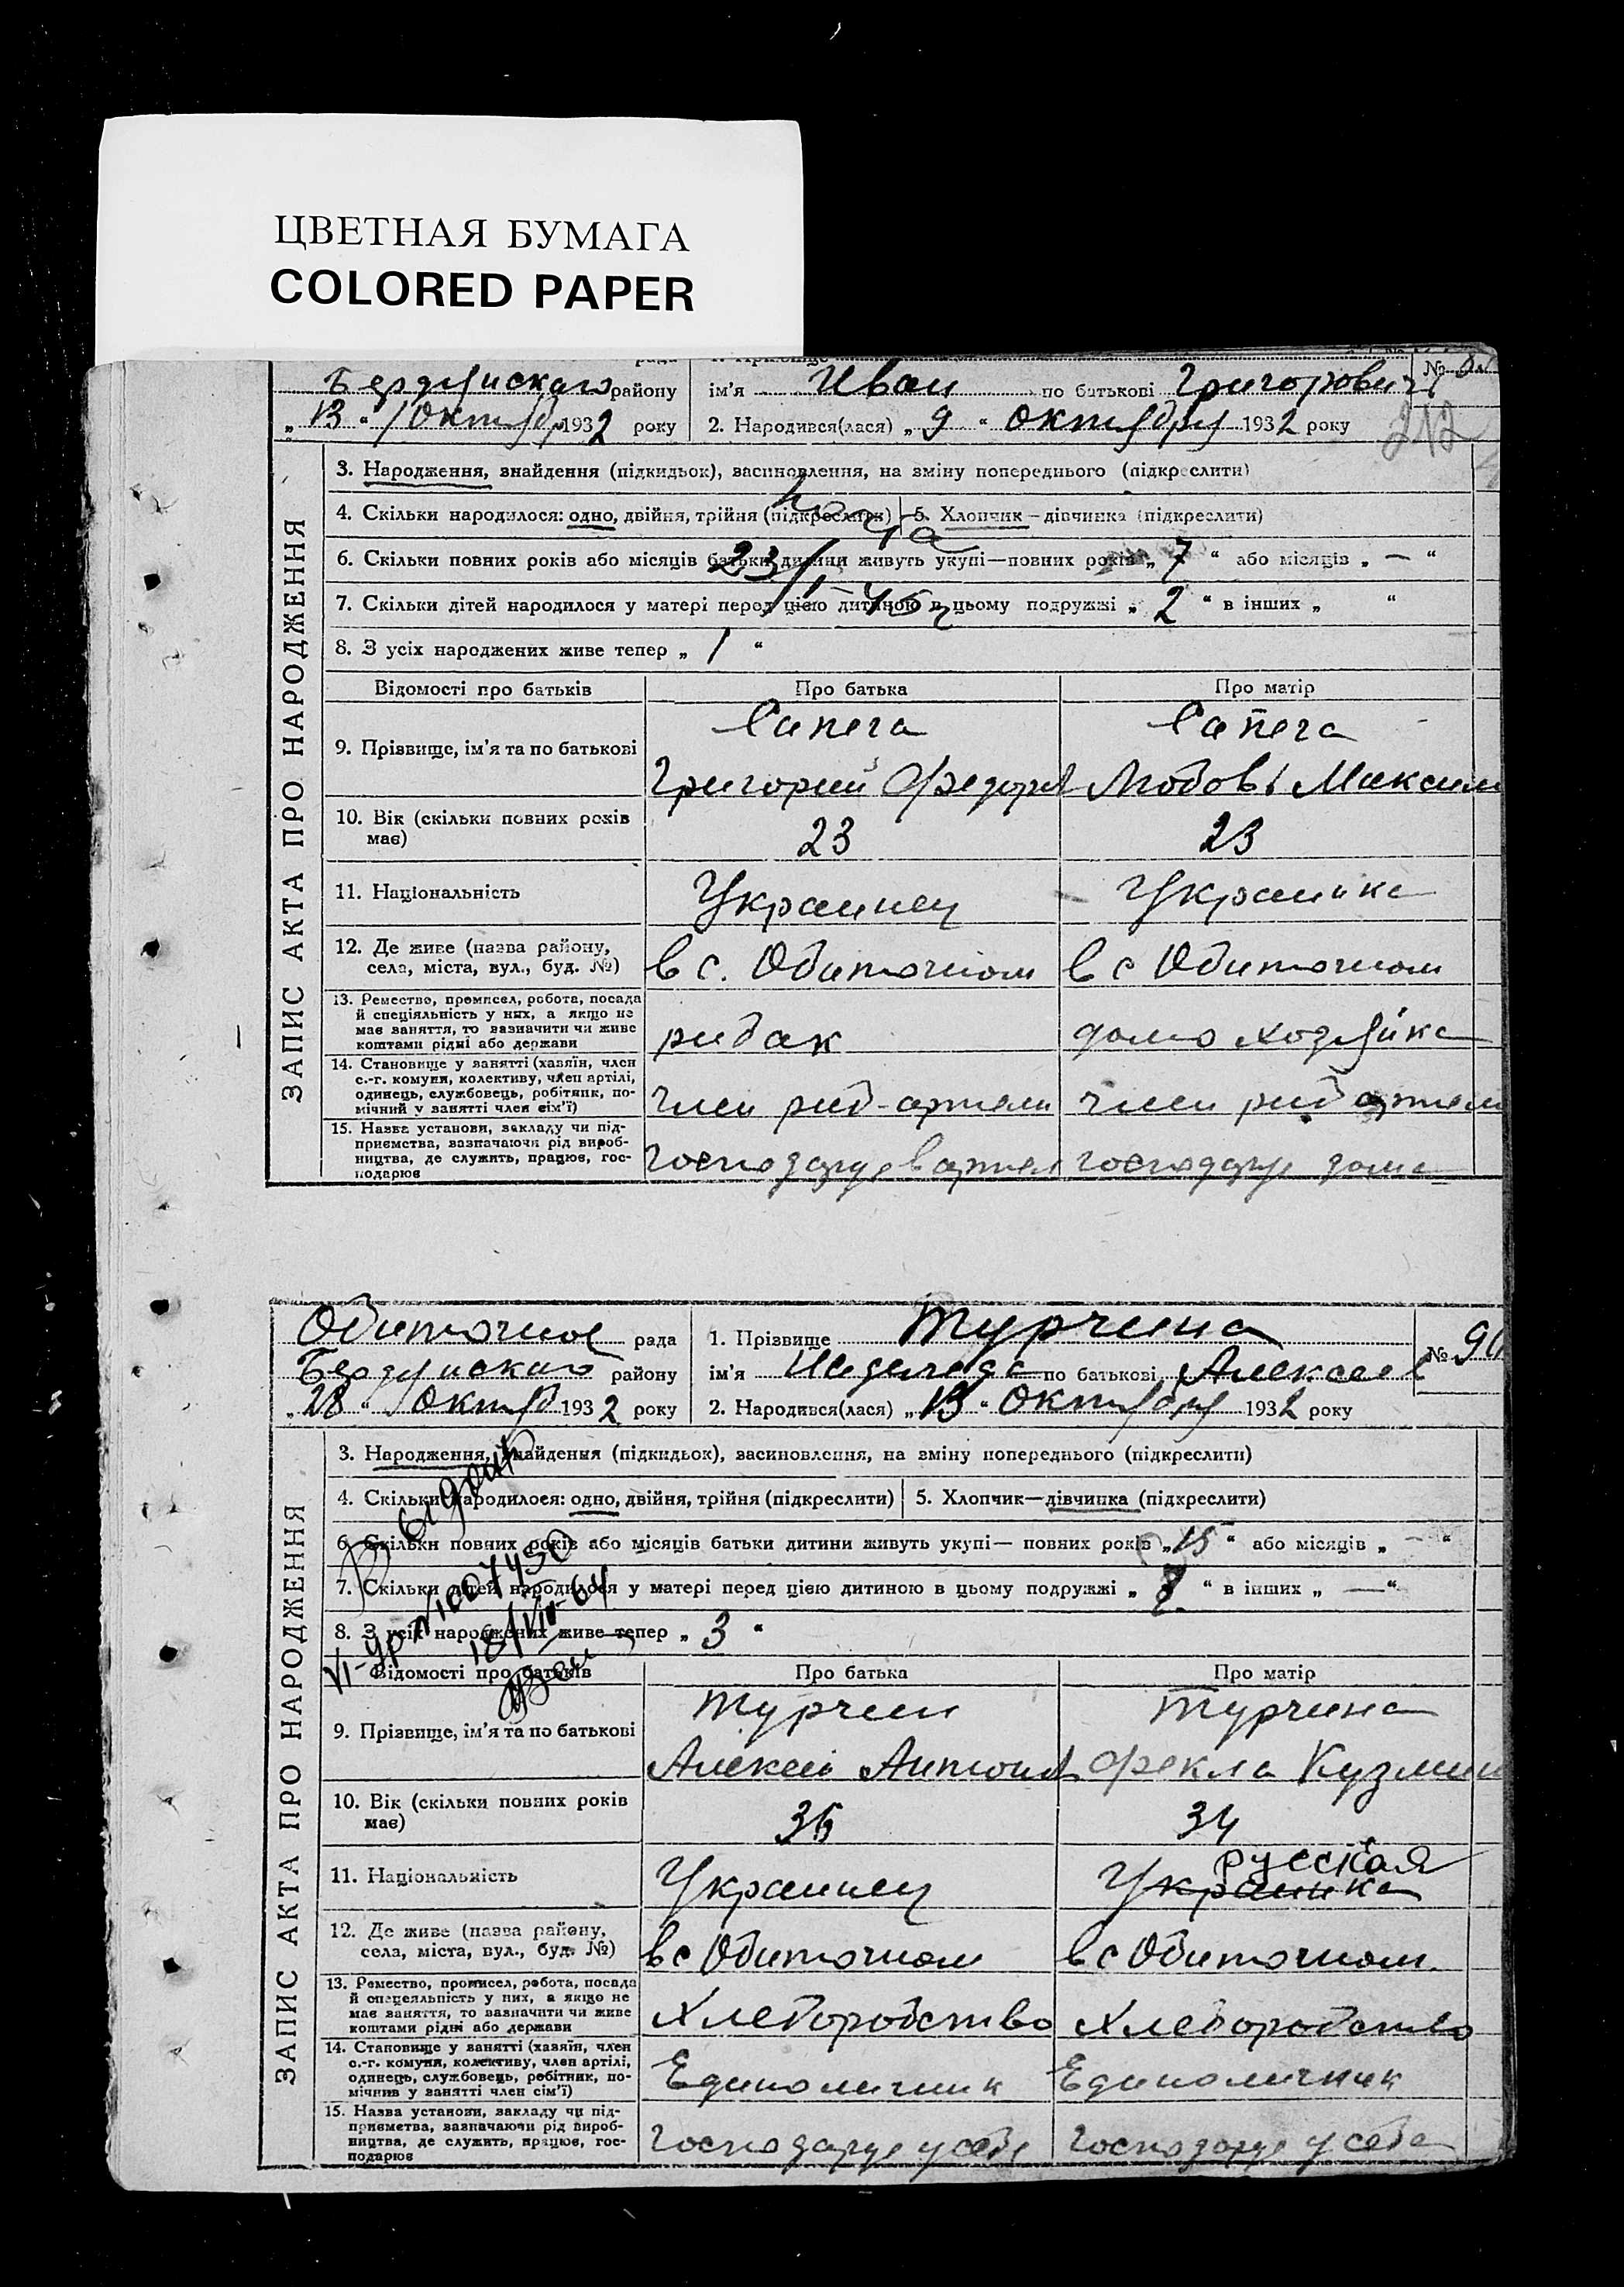 ЦВЕТНАЯ БУМАГА
COLORED PAPER
Бердянского району ім’я Иван по батькові Григорович №
„13“ Октябр 1932 року 2. Народився(лася) „9“ Октября 1932 року 212
ЗАПИС АКТА ПРО НАРОДЖЕННЯ
3. Народження, знайдення (підкидьок), васиновлення, на зміну попереднього (підкреслити)
4. Скільки народилося: одно, двійня, трійня (підкреслити) 5. Хлопчик – дівчинка (підкреслити)
6. Скільки повних років або місяців батьки дитини живуть укупі—повних років „7“ або місяців „—“
7. Скільки дітей народилося у матері перед цією дитиною в цьому подружжі „2“ в інших „ “
23/I-45
8. З усіх народжених живе тепер „1“
Відомості про батьків Про батька Про матір
9. Прізвище, ім’я та по батькові Сапега Сапега
Григорий Федоров Любовь Максим
10. Вік (скільки повних років має) 23 23
11. Національність Украинец Украинка
12. Де живе (назва району, села, міста, вул., буд. №) в с. Обиточном в с Обиточном
13. Ремество, промисел, робота, посада й спеціяльність у них, а якщо не має заняття, то зазначити чи живе коштами рідні або держави рибак домо хозяйка
14. Становище у занятті (хазяїн, член с.-г. комуни, колективу, член артілі, одинець, службовець, робітник, помічний у занятті член сім’ї) член риб-артели член риб артели
15. Назва установи, закладу чи підприємства, зазначаючи рід виробництва, де служить, працює, господарює господарує в артел господарує дома
Обиточное рада 1. Прізвище Турчина
Бердянского району ім’я Надежда по батькові Алексеев № 90
„28“ Октяб 1932 року 2. Народився(лася) „13“ Октября 1932 року
ЗАПИС АКТА ПРО НАРОДЖЕННЯ
3. Народження, знайдення (підкидьок), васиновлення, на зміну попереднього (підкреслити)
4. Скільки народилося: одно, двійня, трійня (підкреслити) 5. Хлопчик—дівчинка (підкреслити)
6. Скільки повних років або місяців батьки дитини живуть укупі— повних років „15“ або місяців „—“
7. Скільки дітей народилося у матері перед цією дитиною в цьому подружжі „ “ в інших „—“
8. З усіх народжених живе тепер „3“
VI-ЯР №007450
18/VIII-64
Відомості про батьків Про батька Про матір
9. Прізвище, ім’я та по батькові Турчин Турчина
Алексей Антонов Фекла Кузмин
10. Вік (скільки повних років має) 36 34
11. Національність Украинец Украинка русская
12. Де живе (назва району, села, міста, вул., буд. №) в с Обиточном в с Обиточном.
13. Ремество, промисел, робота, посада й спецеяльність у них, а якщо не має заняття, то зазначити чи живе коштами рідні або держави Хлеборобство Хлеборобство
14. Становище у занятті (хазяїн, член с.-г. комуни, колективу, член артілі, одинець, службовець, робітник, помічник у занятті член сім’ї) Единоличник Единоличник
15. Назва установи, закладу чи підприємства, зазначаючи рід виробництва, де служить, працює, господарює господарує у себе господарує у себе